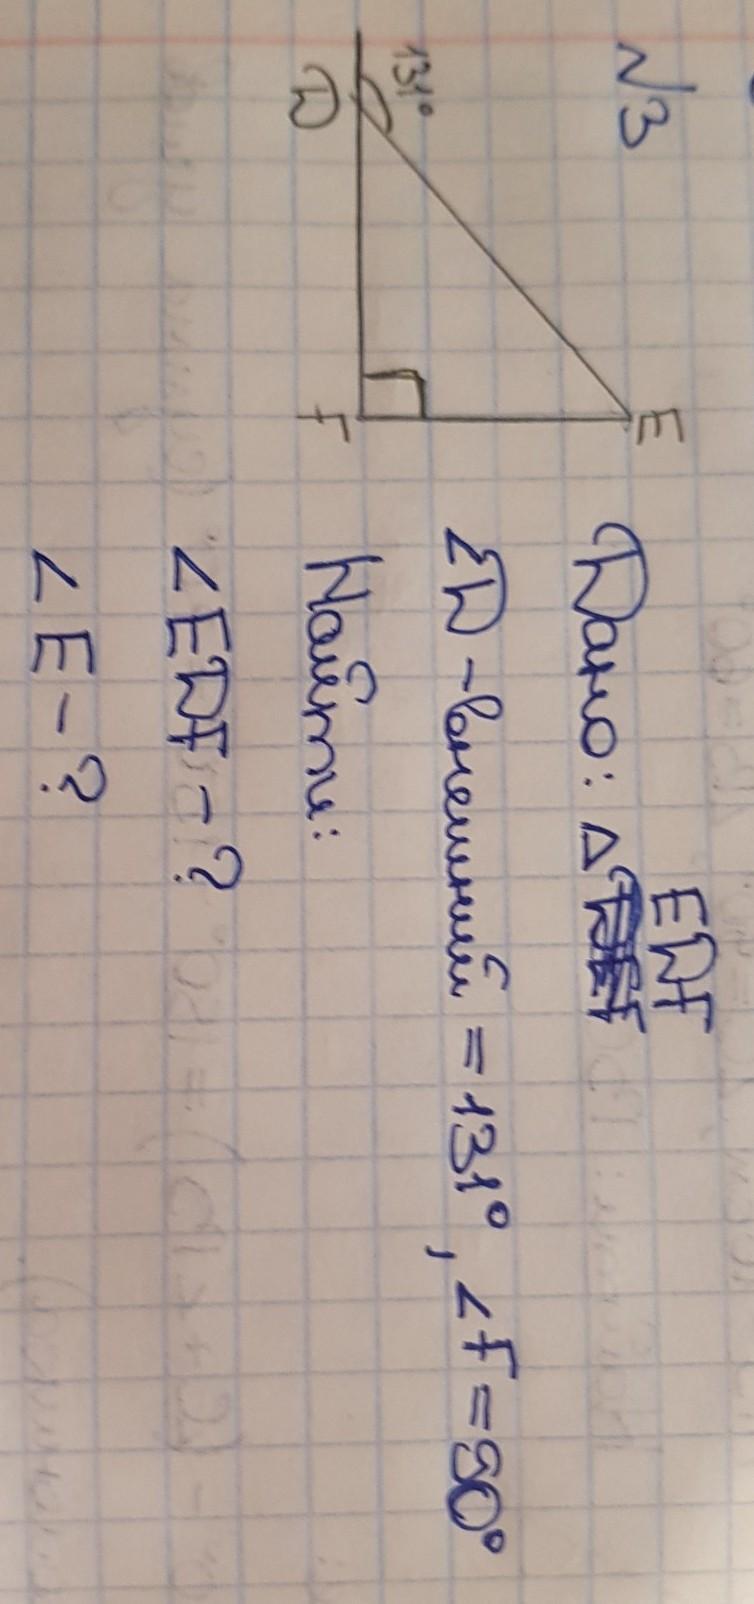 №3
131°
E
D
F
Дано: Δ EDF
∠D - внешний = 131°, ∠F = 90°
Найти:
∠EDF - ?
∠E - ?